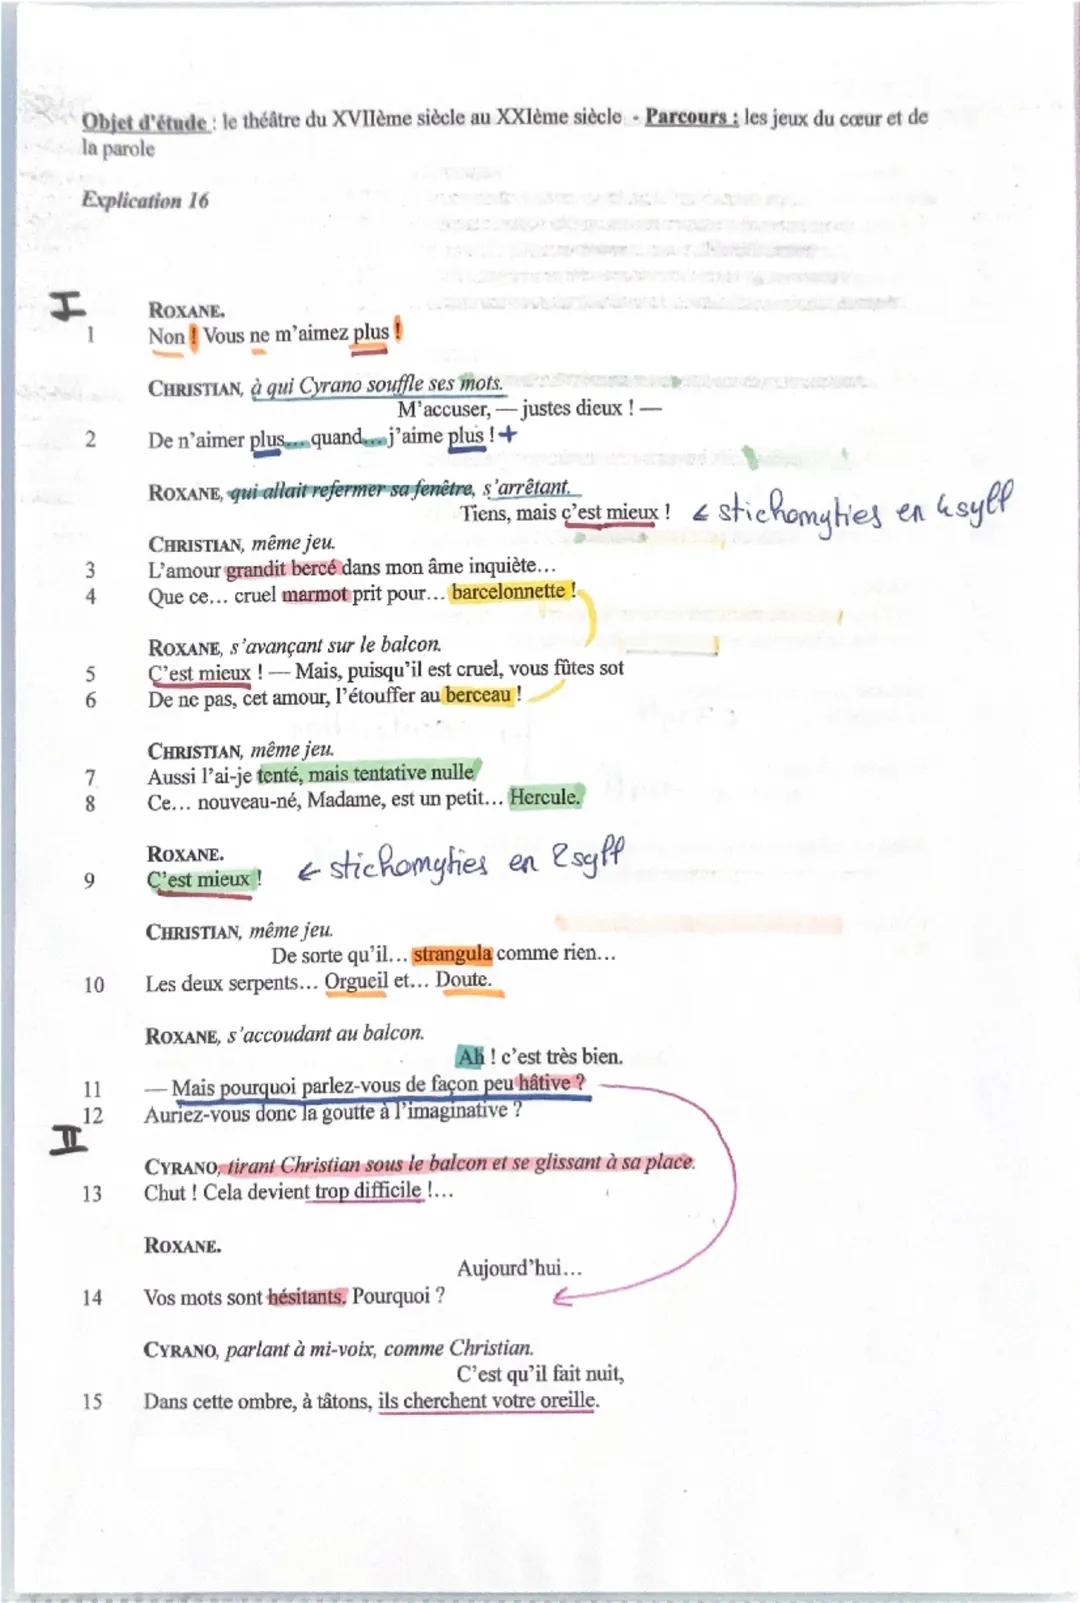 Objet d'étude : le théâtre du XVIIème siècle au XXIème siècle - Parcours : les jeux du cœur et de
la parole
Explication 16
I
ROXANE.
1 Non ! Vous ne m'aimez plus !
CHRISTIAN, à qui Cyrano souffle ses mots.
M'accuser, — justes dieux ! —
2 De n'aimer plus... quand... j'aime plus ! +
ROXANE, qui allait refermer sa fenêtre, s'arrêtant.
Tiens, mais c'est mieux ! ← stichomythies en 4 syll
CHRISTIAN, même jeu.
3 L'amour grandit bercé dans mon âme inquiète...
4 Que ce... cruel marmot prit pour... barcelonnette !
ROXANE, s'avançant sur le balcon.
5 C'est mieux ! — Mais, puisqu'il est cruel, vous fûtes sot
6 De ne pas, cet amour, l'étouffer au berceau !
CHRISTIAN, même jeu.
7 Aussi l'ai-je tenté, mais tentative nulle
8 Ce... nouveau-né, Madame, est un petit... Hercule.
ROXANE.
9 C'est mieux ! ← stichomythies en 2 syll
CHRISTIAN, même jeu.
De sorte qu'il... strangula comme rien...
10 Les deux serpents... Orgueil et... Doute.
ROXANE, s'accoudant au balcon.
Ah ! c'est très bien.
11 — Mais pourquoi parlez-vous de façon peu hâtive ?
12 Auriez-vous donc la goutte à l'imaginative ?
II
CYRANO, tirant Christian sous le balcon et se glissant à sa place.
13 Chut ! Cela devient trop difficile !...
ROXANE.
Aujourd'hui...
14 Vos mots sont hésitants. Pourquoi ?
CYRANO, parlant à mi-voix, comme Christian.
C'est qu'il fait nuit,
15 Dans cette ombre, à tâtons, ils cherchent votre oreille.